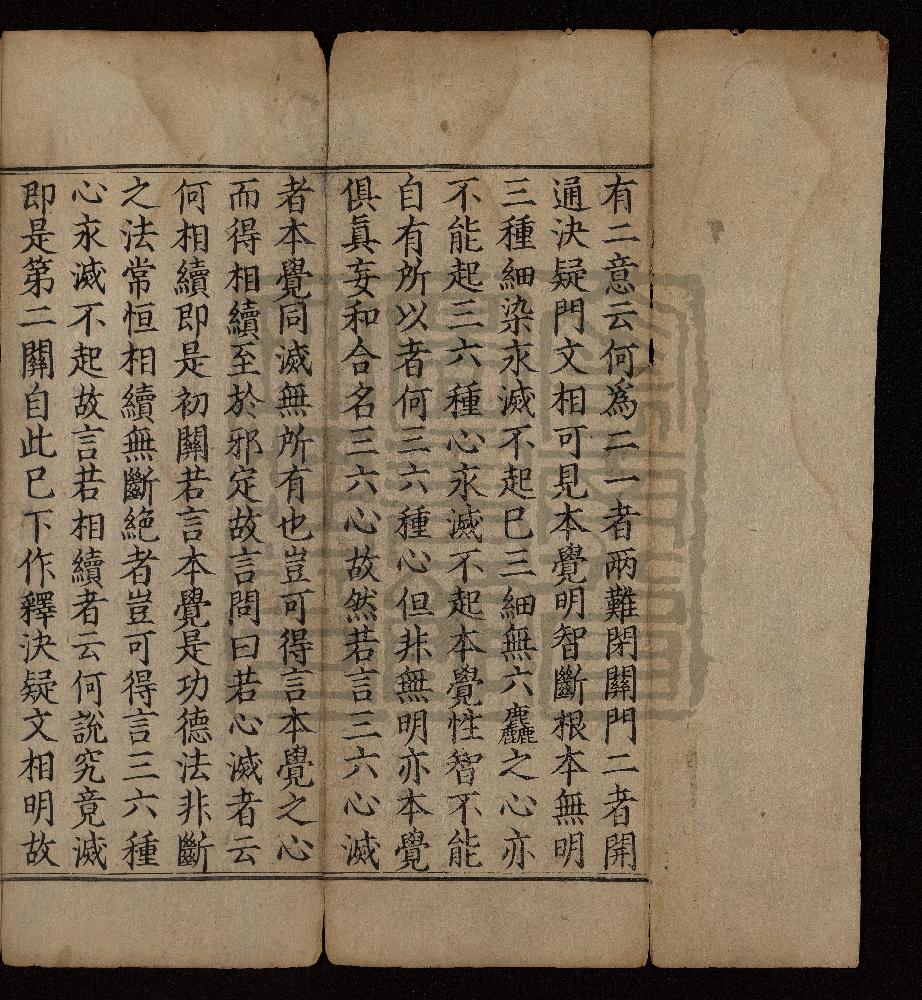 有二意云何爲二一者兩難閉關門二者開
通決疑門文相可見本覺明智斷根本無明
三種細染永滅不起已三細無六麤之心亦
不能起三六種心永滅不起本覺性智不能
自有所以者何三六種心但非無明亦本覺
俱眞妄和合名三六心故然若言三六心滅
者本覺同滅無所有也豈可得言本覺之心
而得相續至於邪定故言問曰若心滅者云
何相續即是初關若言本覺是功德法非斷
之法常恒相續無斷絶者豈可得言三六種
心永滅不起故言若相續者云何說究竟滅
即是第二關自此已下作釋決疑文相明故